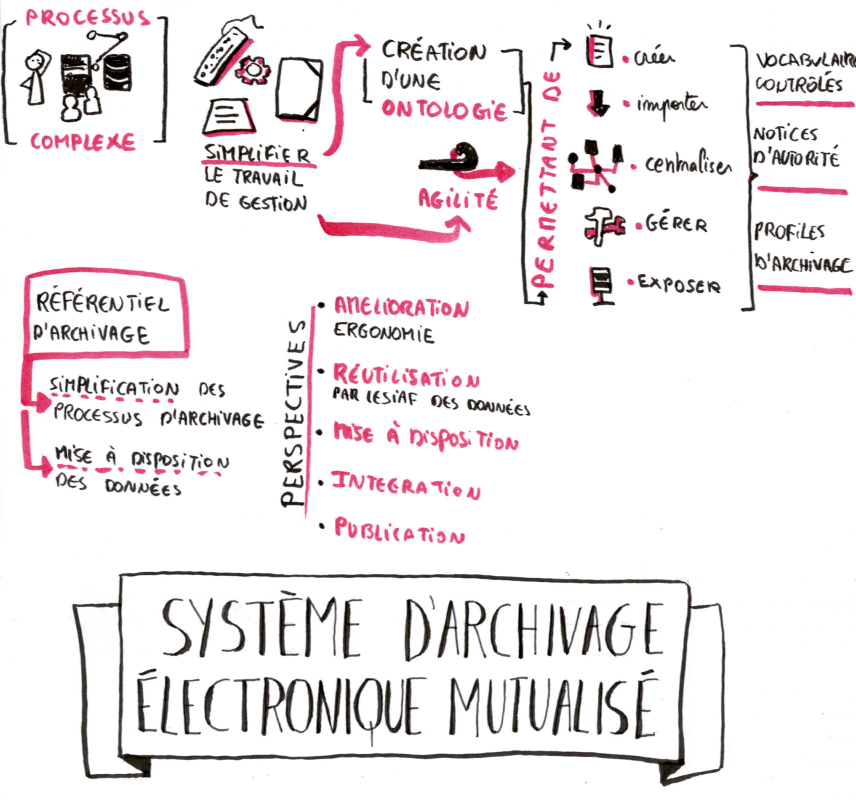 PROCESSUS
COMPLEXE
SIMPLIFIER
LE TRAVAIL
DE GESTION
CRÉATION
D'UNE
ONTOLOGIE
AGILITÉ
PERMETTANT DE
• créer
• importer
• centraliser
• GÉRER
• EXPOSER
VOCABULAIRE
CONTRÔLÉS
NOTICES
D'AUTORITÉ
PROFILES
D'ARCHIVAGE
RÉFÉRENTIEL
D'ARCHIVAGE
SIMPLIFICATION DES
PROCESSUS D'ARCHIVAGE
MISE À DISPOSITION
DES DONNÉES
PERSPECTIVES
• AMELIORATION
ERGONOMIE
• RÉUTILISATION
PAR LESIAF DES DONNÉES
• MISE À DISPOSITION
• INTEGRATION
• PUBLICATION
SYSTÈME D'ARCHIVAGE
ÉLECTRONIQUE MUTUALISÉ